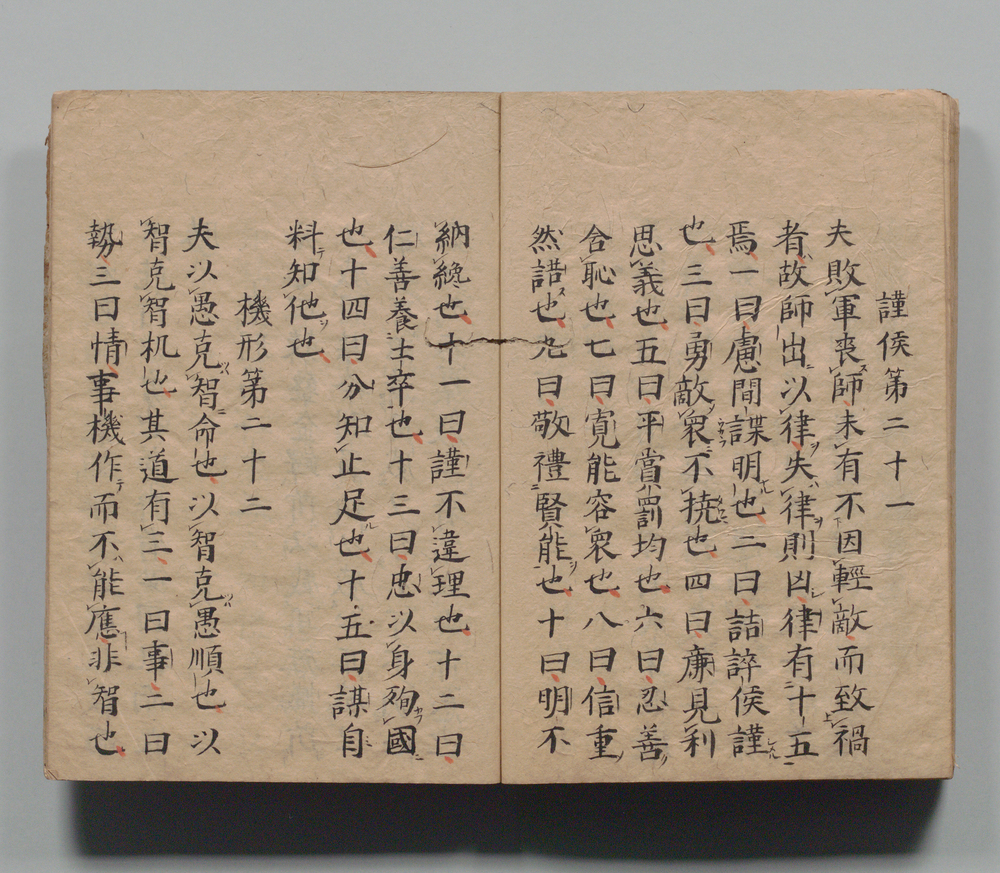 謹侯第二十一
夫敗軍喪師未有不因輕敵而致禍
者故師出以律失律則凶律有十五
焉一曰慮間諜明也二曰詰誶侯謹
也三曰勇敵衆不撓也四曰廉見利
思義也五曰平賞罰均也六曰忍善
含恥也七曰寛能容衆也八曰信重
然諾也九曰敬禮賢能也十曰明不
納纔也十一曰謹不違理也十二曰
仁善養士卒也十三曰忠以身殉國
也十四曰分知止足也十五曰謀自
料知他也
機形第二十二
夫以愚克智命也以智克愚順也以
智克智机也其道有三一曰事二曰
勢三曰情事機作而不能應非智也